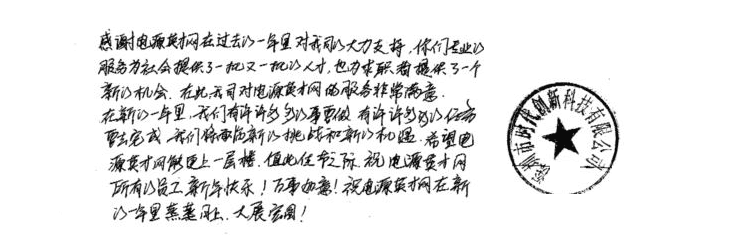 感谢电源英才网在过去的一年里对我司的大力支持，你们专业的
服务为社会提供了一批又一批的人才，也为求职者提供了一个
新的机会。在此我司对电源英才网的服务非常满意。
在新的一年里，我们有许许多多的事要做 有许许多多的任务
要去完成，我们将面临新的挑战和新的机遇。希望电
源英才网能更上一层楼。值此佳节之际 祝电源英才网
所有的员工 新年快乐！万事如意！祝电源英才网在新
的一年里蒸蒸日上、大展宏图！
深圳市时代创新科技有限公司